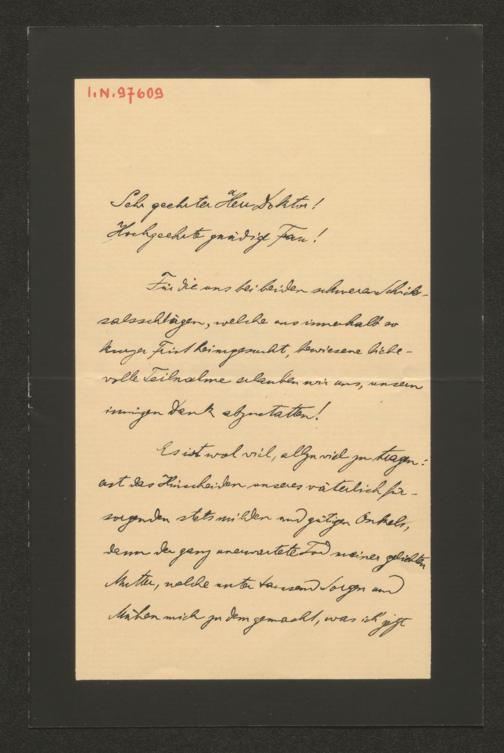 I.N.97609
Sehr geehrter Herr Doktor!
Hochgeehrte gnädige Frau!
Für die uns bei beiden schweren Schick-
salsschlägen, welche uns innerhalb so
kurzer Frist heimgesucht, bewiesene liebe-
volle Teilnahme erlauben wir uns, unsern
innigen Dank abzustatten!
Es ist wol viel, allzu viel zu tragen:
erst das Hinscheiden unseres väterlich für-
sorgenden stets milden und gütigen Onkels,
dann der ganz unerwartete Tod meiner geliebten
Mutter, welche unter tausend Sorgen und
Mühen mich zu dem gemacht, was ich jetzt